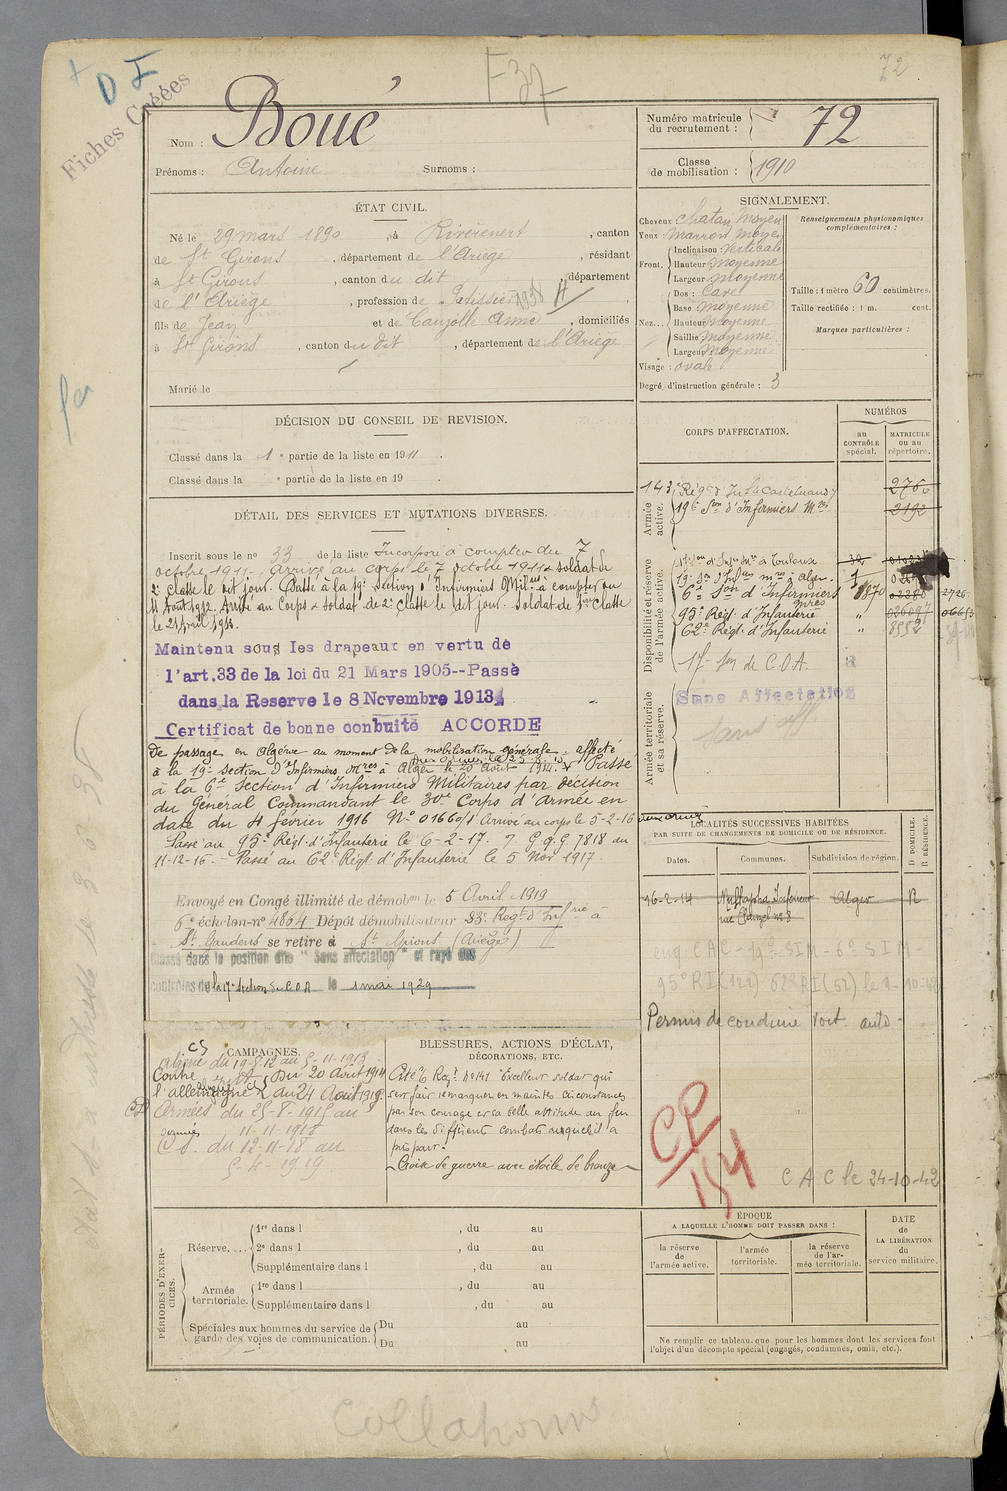 + D I
Fiches Créées
F 37
72
Nom : Boué
Prénoms : Antoine Surnoms :
Numéro matricule
du recrutement : 72
Classe
de mobilisation : 1910
ÉTAT CIVIL.
Né le 29 mars 1890, à Rivèrenert, canton
de St Girons, département de l'Ariège, résidant
à St Girons, canton du dit, département
de l'Ariège, profession de Patissier 1938
fils de Jean et de Caujolle Anne, domiciliés
à St Girons, canton du dit, département de l'Ariège
Marié le
SIGNALEMENT.
Cheveux : chatain moyen
Yeux : Marrons Moyen
Front. Inclinaison : Verticale
Hauteur : moyenne
Largeur : moyenne
Nez... Dos : Cave
Base : moyenne
Hauteur : moyenne
Saillie : moyenne
Largeur : moyenne
Visage : ovale
Degré d'instruction générale : 3
Renseignements physionomiques
complémentaires :
Taille : 1 mètre 60 centimètres.
Taille rectifiée : 1 m. cent.
Marques particulières :
DÉCISION DU CONSEIL DE REVISION.
Classé dans la 1e partie de la liste en 1911.
Classé dans la e partie de la liste en 19 .
DÉTAIL DES SERVICES ET MUTATIONS DIVERSES.
Inscrit sous le no 33 de la liste Incorporé à compter du 7
octobre 1911. Arrivé au corps le 7 octobre 1911 & soldat de
2e classe le dit jour. Passé à la 19e Section d'Infirmiers Milres à compter du
11 Aout 1912. Arrivé au Corps & soldat de 2e classe le dit jour. Soldat de 1ère classe
le 21 Avril 1913.
Maintenu sous les drapeaux en vertu de
l'art. 33 de la loi du 21 Mars 1905--Passé
dans la Reserve le 8 Novembre 1913
Certificat de bonne conduite ACCORDE
De passage en Algérie au moment de la mobilisation générale. affecté
à la 19e section d'Infirmiers Mres à Alger le 20 Aout 1914. Passé
à la 6e Section d'Infirmiers Militaires par décision
du Général Commandant le 30e Corps d'Armée en
date du 4 février 1916 No 01660/1 Arrivé au corps le 5-2-16
Passé au 95e Régt. d'Infanterie le 6-2-17. G.Q.G. 7818 du
11-12-16. - Passé au 62e Régt d'Infanterie le 5 Nov 1917.
Envoyé en Congé illimité de démobon le 5 Avril 1919
6e échelon-no 4864 Dépôt démobilisateur 83e Regt d'Infrie à
St Gaudens se retire à St Girons (Ariège)
Classé dans la position dite "Sans affectation" et rayé des
contrôles de la 17e Section de C.O.A le 1 mai 1929
CORPS D'AFFECTATION.
NUMÉROS
au
CONTRÔLE
spécial.
MATRICULE
ou au
répertoire.
Armée
active.
143e Régt d'Infie Castelnaudary 2760
19e Son d'Infirmiers Mres 2192
Disponibilité et réserve
de l'armée active.
19e Son d'Infres mres à Alger
6e Son d'Infirmiers mres
95e Régt. d'Infanterie
62e Régt. d'Infanterie 8552
17e Son de C.O.A.
Armée territoriale
et sa réserve.
Sans Affectation
sans aff
LOCALITÉS SUCCESSIVES HABITÉES
PAR SUITE DE CHANGEMENTS DE DOMICILE OU DE RÉSIDENCE.
Dates. Communes. Subdivision de région. D DOMICILE. R RÉSIDENCE.
16-2-14 Mustapha Inférieur Alger R
rue Clauzel no 8
Permis de conduire Voit. auto
CP
184
C A C le 24-10-42
CAMPAGNES.
Algérie du 19-8-12 au 5-11-1913
Contre l'allemagne du 20 Août 1914
au 24 Août 1915
Armées du 25-8-1915 au
11-11-1918
du 12-11-18 au
5-4-1919
BLESSURES, ACTIONS D'ÉCLAT,
DÉCORATIONS, ETC.
Cité Regt. No 141 "Excellent soldat qui
s'est fait remarquer en maintes circonstances
par son courage et sa belle attitude au feu
dans les différents combats auxquels il a
pris part.-
Croix de guerre avec étoile de bronze
PÉRIODES D'EXERCICES.
Réserve.... 1re dans l , du au
2e dans l , du au
Supplémentaire dans l , du au
Armée
territoriale. 1re dans l , du au
Supplémentaire dans l , du au
Spéciales aux hommes du service de
garde des voies de communication. Du au
Du au
ÉPOQUE
A LAQUELLE L'HOMME DOIT PASSER DANS :
la réserve
de
l'armée active.
l'armée
territoriale.
la réserve
de l'ar-
mée territoriale.
DATE
de
LA LIBÉRATION
du
service militaire.
Ne remplir ce tableau que pour les hommes dont les services font
l'objet d'un décompte spécial (engagés, condamnés, omis, etc.).